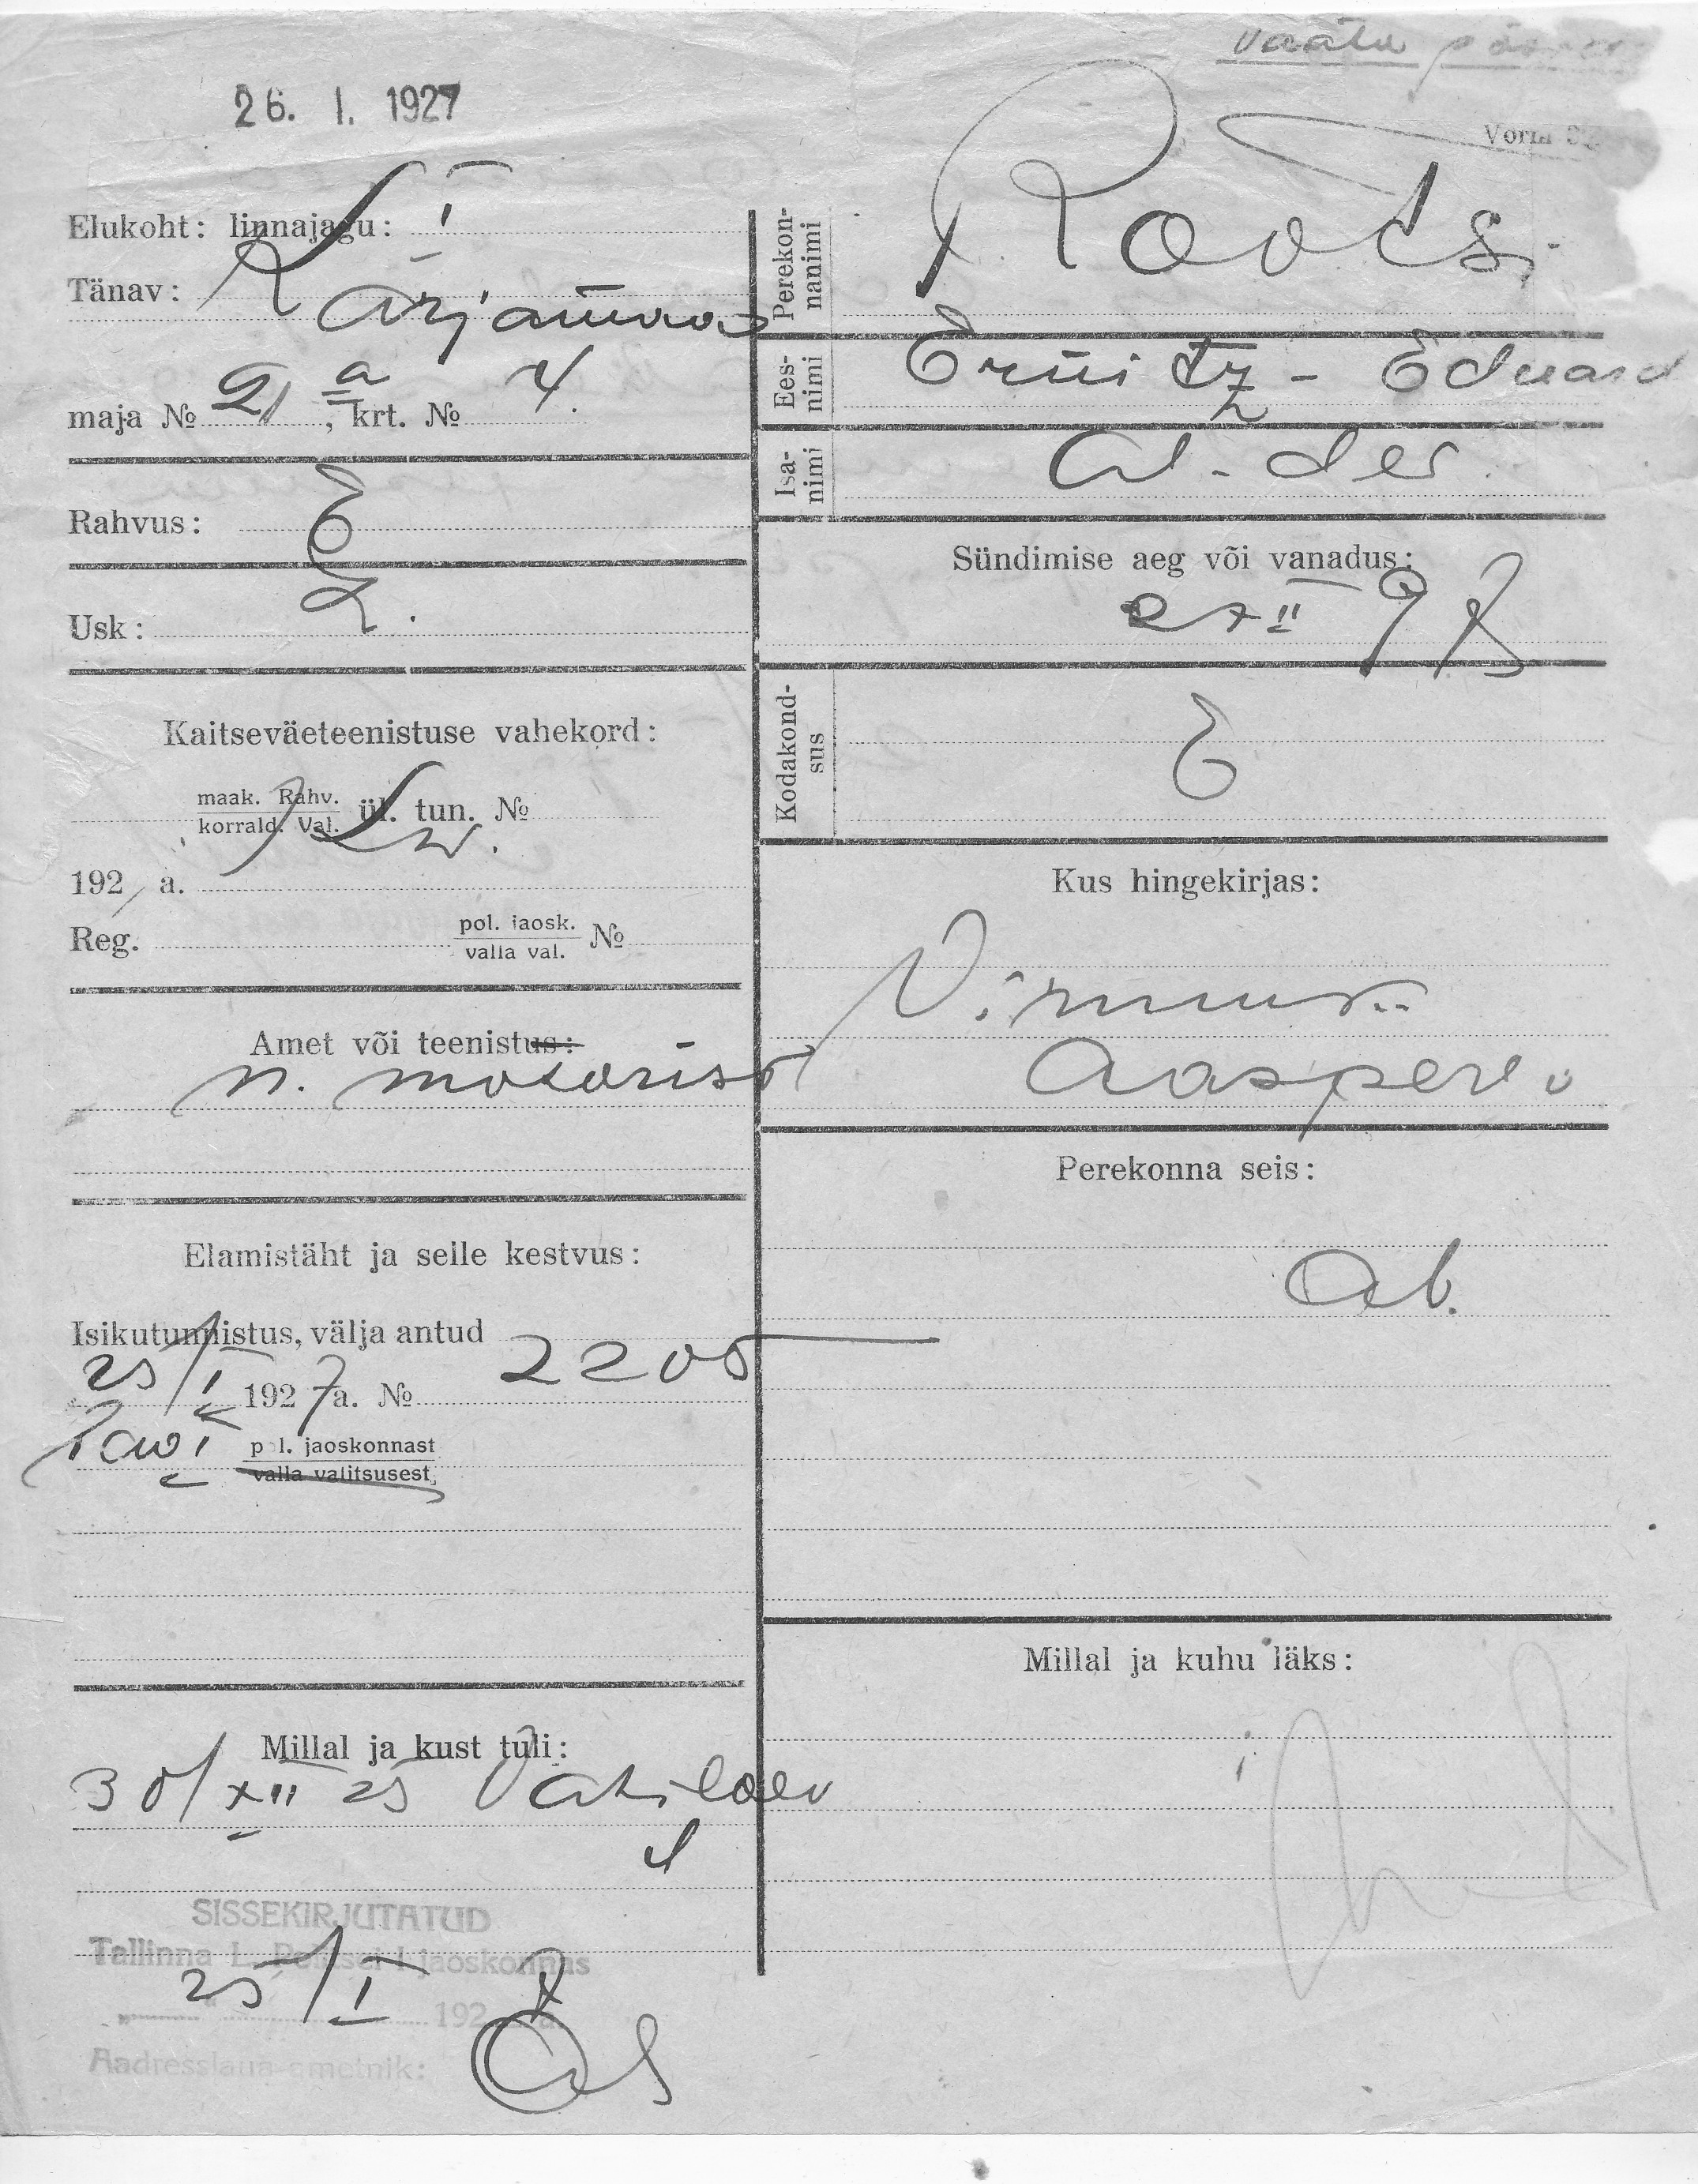 Vaata
26. I. 1927
Vorm
Elukoht: linnajagu: I
Tänav: Karjamaa
maja № 21 a, krt. № 4.
Rahvus: E
Usk: L.
Kaitseväeteenistuse vahekord:
maak. Rahv.
korrald. Val. ül. tun. №
192 a.
Reg. pol. jaosk.
valla val. №
Amet või teenistus:
n. motorist
Elamistäht ja selle kestvus:
Isikutunnistus, välja antud
25/I 1927 a. № 2205
pol. jaoskonnast
valla valitsusest
Millal ja kust tuli:
30/XII 25
SISSEKIRJUTATUD
Tallinna L. Politsei I jaoskonnas
25/I 1927
Aadresslaua ametnik:
Perekon-
nanimi Roots.
Ees-
nimi Eduard
Isa-
nimi Al-der
Sündimise aeg või vanadus:
Kodakond-
sus E
Kus hingekirjas:
Virumaa
Aaspere v
Perekonna seis:
Ab.
Millal ja kuhu läks: